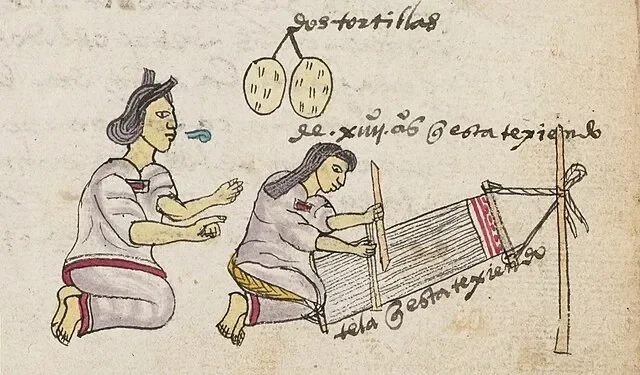 dos tortillas
de . xiiij . aºs q̄ esta texiendo
tela q̄ esta texiendo